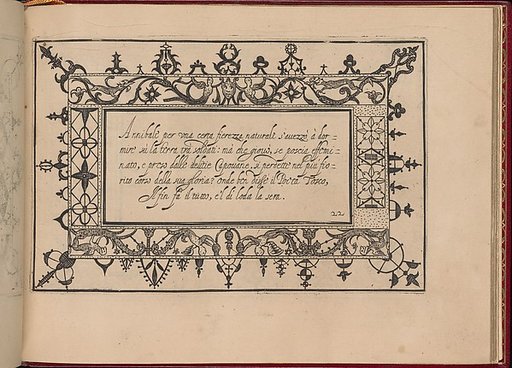 Annibale per una certa fierezza naturale s'avezzò à dor=
mire sù la terra trà soldati: mà che giovò, se poscia effemi=
nato, e preso dalle delitie Capovane, si perdette nel più fio=
rito corso della sua gloria? Onde ben disse il Poeta Tosco,
Il fin fà il tutto, e'l dì loda la sera.
22